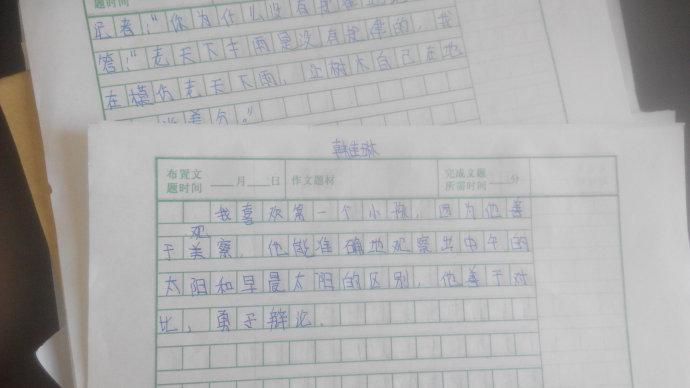 题时间
记者:"你为什么没有规律
答:"老天下雨是没有规律的,我
在模仿老天下雨,让树木自己在地
韩佳琳
布置文 完成文题
题时间 月 日 作文题材 所需时间 分
我喜欢第一个小孩,因为他善
观
于关察,他能准确地观察出中午的
太阳和早晨太阳的区别,他善于对
比,勇于辩论.